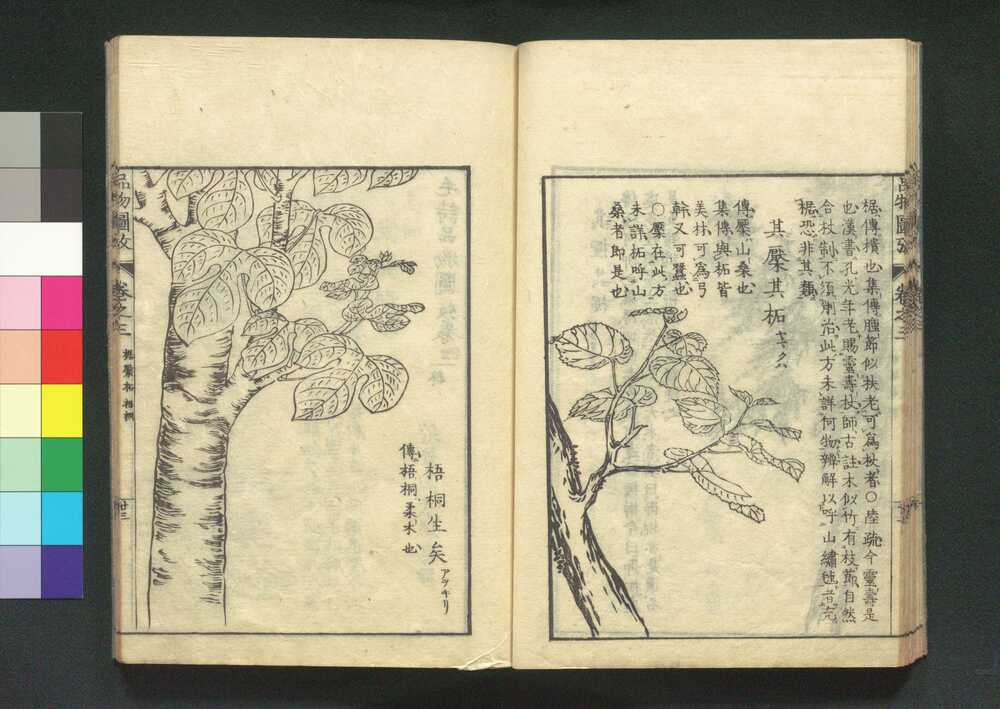 椐傳樻也集傳腫節似扶老可爲杖者○陸疏今靈壽是
也漢書孔光年老賜靈壽杖師古註木似竹有枝節自然
合杖制不須削治此方未詳何物辨解以呼山繡毬者充
椐恐非其類
其檿其柘 ヤマグハ
傳檿山桑也
集傳與柘皆
美材可爲弓
幹又可蠶也
○檿在此方
未詳柘呼山
桑者即是也
品物圖攷 卷之三
品物圖攷 卷之三 椐檿柘 梧桐 廿三
梧桐生矣 アヲキリ
傳梧桐柔木也